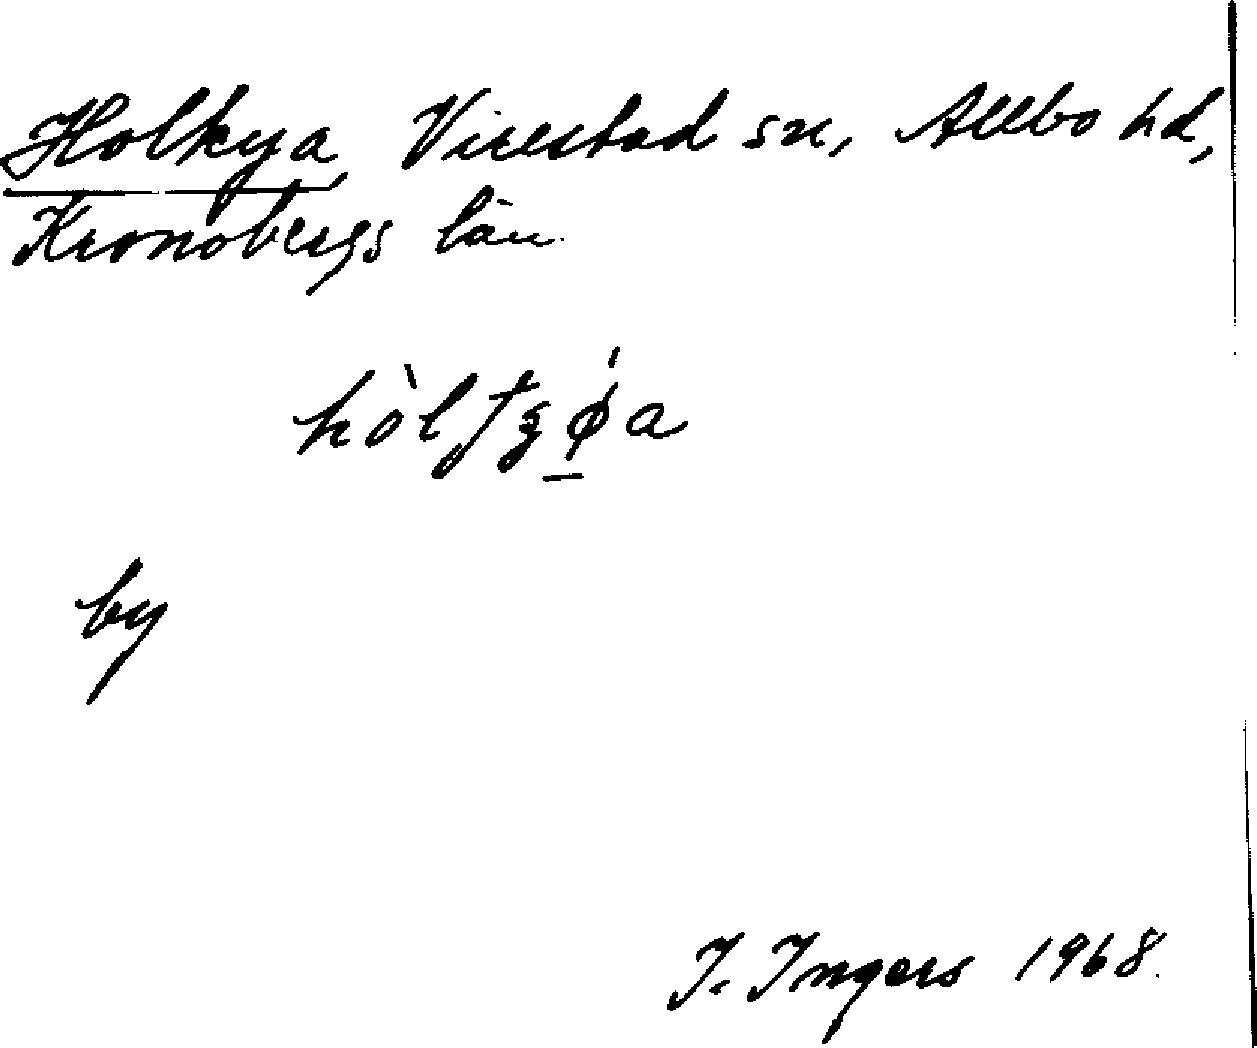 Holkya, Virestad sn, Allbo hd,
Kronobergs län.
hòlʈʓǿ̲a
by
I. Ingers 1968.